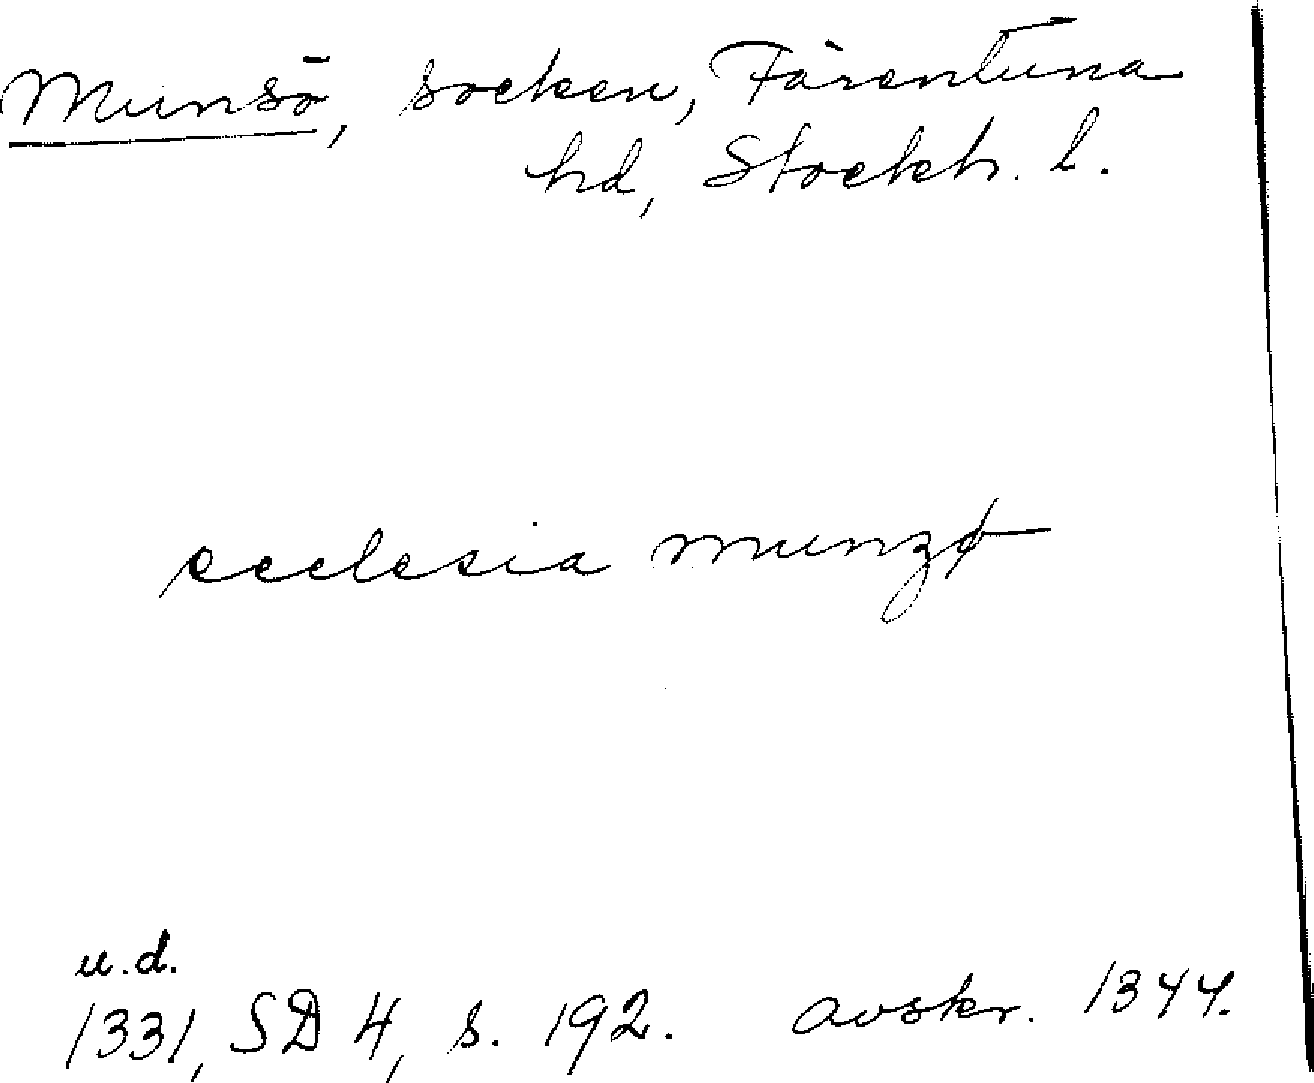 Munsö, socken, Färentuna
hd, Stockh. l.
ecclesia munzø
u.d.
1331, SD 4, s. 192. avskr. 1344.